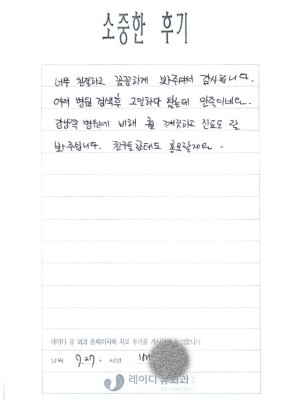 소중한 후기
너무 친절하고 꼼꼼하게 봐주셔서 감사합니다.
여러 병원 검색후 고민하다 왔는데 만족이네요.
강남쪽 병원에 비해 훨 깨끗하고 진료도 잘
봐주십니다. 친구들한테도 홍보할게요
레이디 유 외과 홈페이지에 치료 후기를 게시
날짜 7.27. 서명
레이디유외과